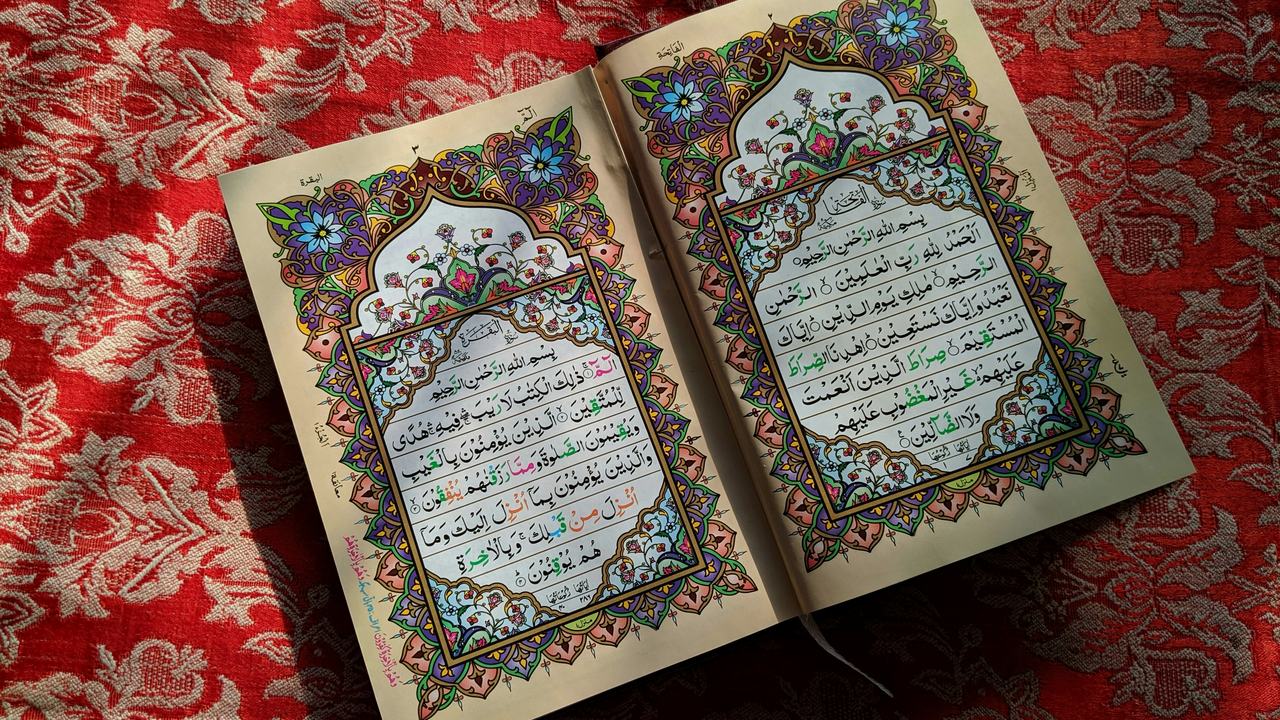 الفَاتِحَة
٢
سُوْرَةُ الْفَاتِحَةِ
بِسْمِ اللهِ الرَّحْمٰنِ الرَّحِيْمِ
اَلْحَمْدُ لِلّٰهِ رَبِّ الْعٰلَمِيْنَ ۙ الرَّحْمٰنِ
الرَّحِيْمِ ۙ مٰلِكِ يَوْمِ الدِّيْنِ ؕ اِيَّاكَ
نَعْبُدُ وَاِيَّاكَ نَسْتَعِيْنُ ؕ اِهْدِنَا الصِّرَاطَ
الْمُسْتَقِيْمَ ۙ صِرَاطَ الَّذِيْنَ اَنْعَمْتَ
عَلَيْهِمْ ۙ غَيْرِ الْمَغْضُوْبِ عَلَيْهِمْ
وَلَا الضَّآلِّيْنَ
منزل
البقرة
٣
سُوْرَةُ الْبَقَرَةِ
بِسْمِ اللهِ الرَّحْمٰنِ الرَّحِيْمِ
الٓمّٓ ۚ ذٰلِكَ الْكِتٰبُ لَا رَيْبَ ۛ فِيْهِ ۛ هُدًى
لِّلْمُتَّقِيْنَ ۙ الَّذِيْنَ يُؤْمِنُوْنَ بِالْغَيْبِ
وَيُقِيْمُوْنَ الصَّلٰوةَ وَمِمَّا رَزَقْنٰهُمْ يُنْفِقُوْنَ ۙ
وَالَّذِيْنَ يُؤْمِنُوْنَ بِمَا اُنْزِلَ اِلَيْكَ وَمَا
اُنْزِلَ مِنْ قَبْلِكَ ۚ وَبِالْاٰخِرَةِ
هُمْ يُوْقِنُوْنَ
منزل